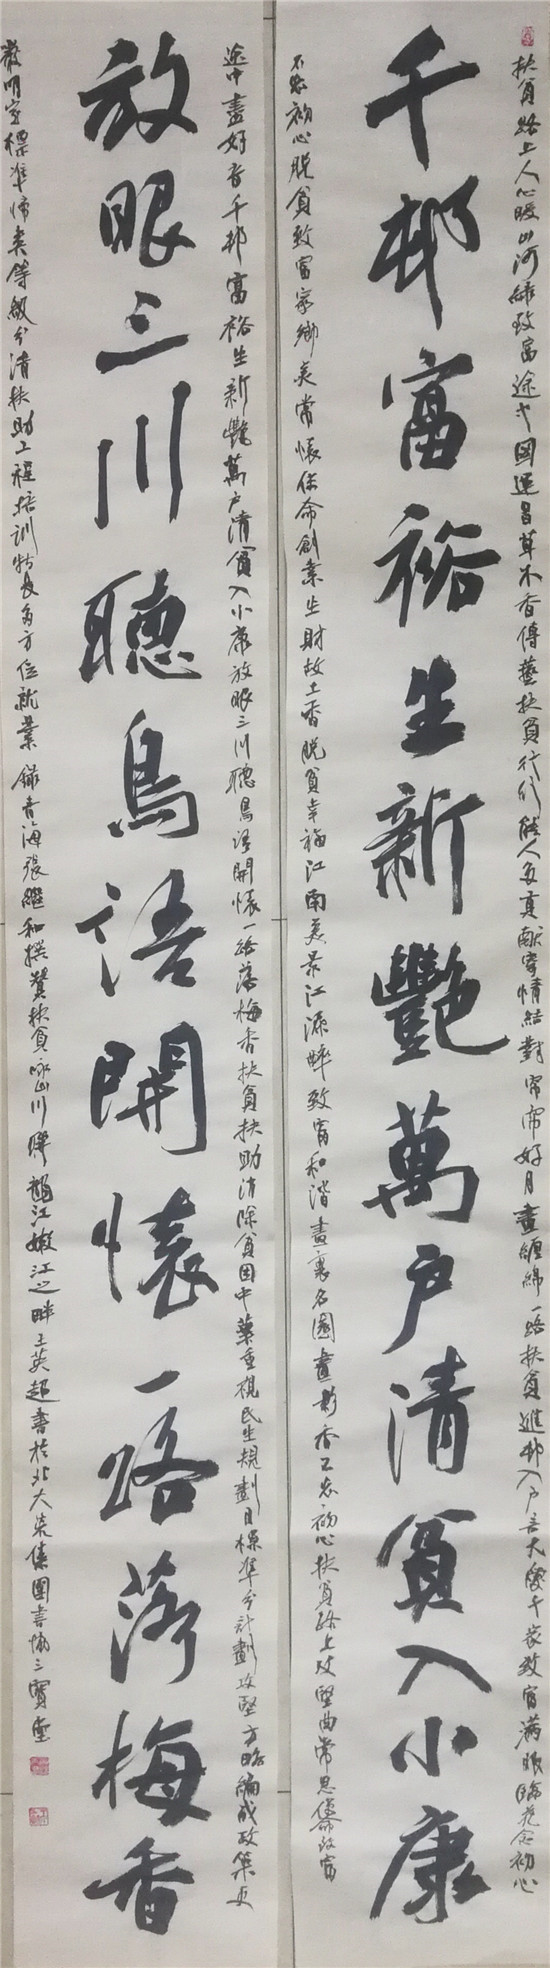 扶貧路上人心暖山河綠致富途中國運昌草木香傳藝扶貧行代能人多真獻寄情結對常常好月畫纏綿一路扶貧進邨入户言大愛千家致富滿眼臨花念初心
千邨富裕生新艷萬户清貧入小康
不忘初心脱貧致富家鄉美常懷使命創業生財故土香脱貧幸福江南美景江源醉致富和諧畫裏名園畫影香不忘初心扶貧路上攻堅曲常思使命致富
途中盡好音千邨富裕生新艷萬户清貧入小康放眼三川聽鳥語開懷一路落梅香扶貧扶助消除貧困中華重視民生規劃目標準分計劃攻堅方略編成政策更
放眼三川聽鳥語開懷一路落梅香
嚴明家標準歸类等級分清扶助工程培訓特長多方位就業 錄青海張繼和撰贊扶貧咏山川聯 龍江嫩江之畔王英超書於北大荒集團書協三寶堂